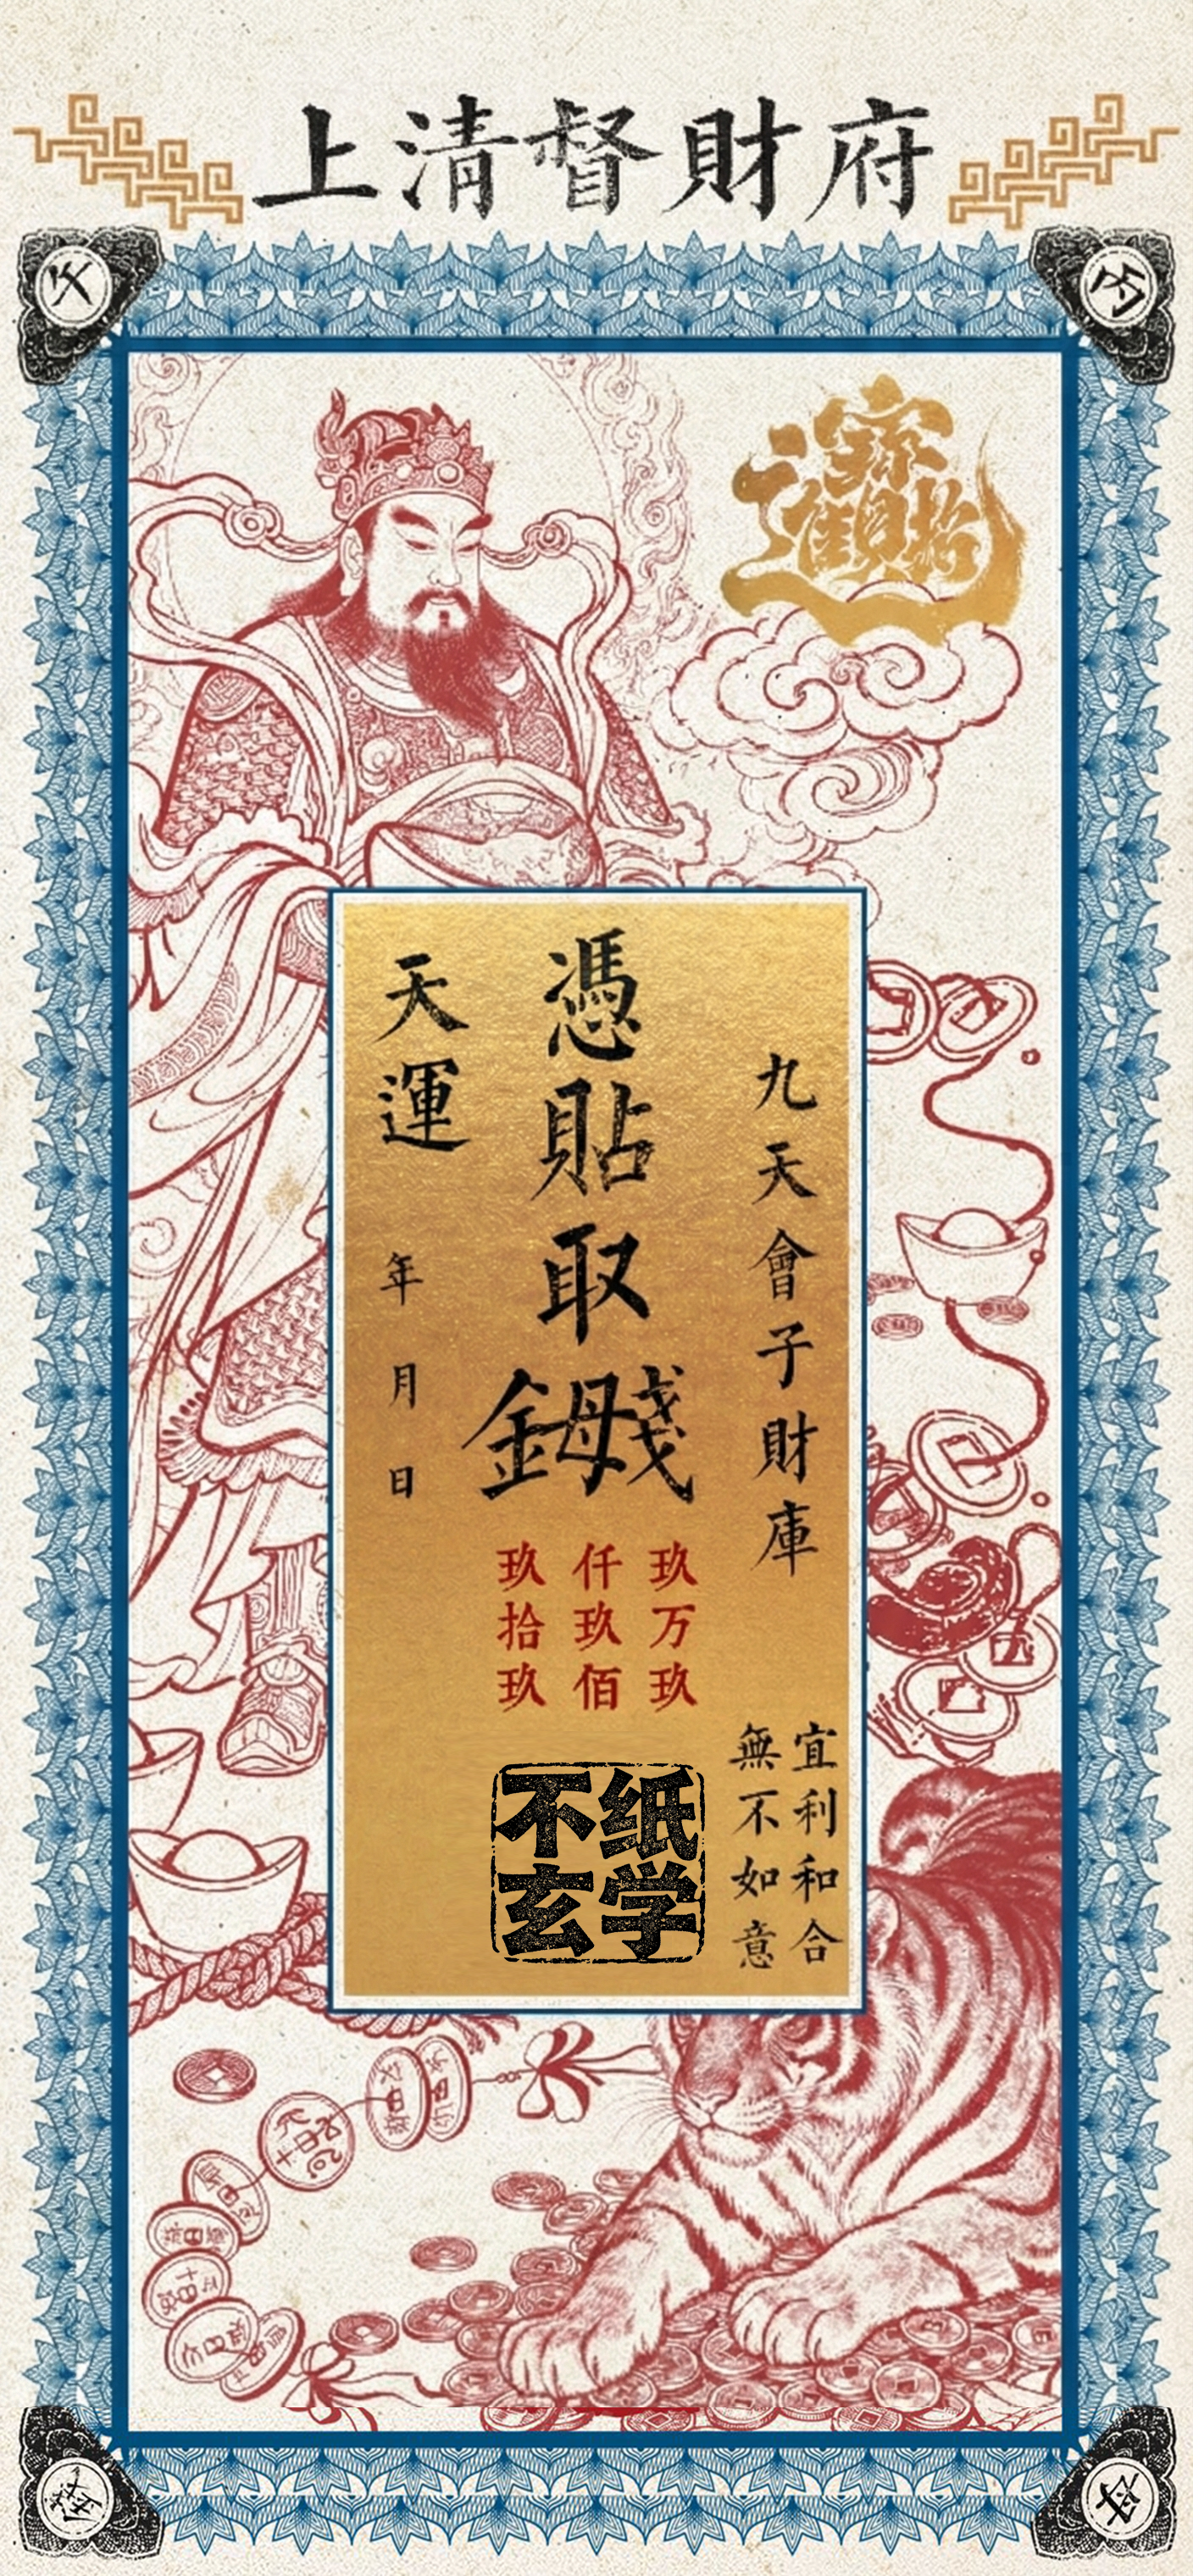 上清督財府
招財進寶
九天會子財庫
宜利和合
無不如意
憑貼取
錢母
玖万玖
仟玖佰
玖拾玖
天運
年 月 日
不纸
玄学